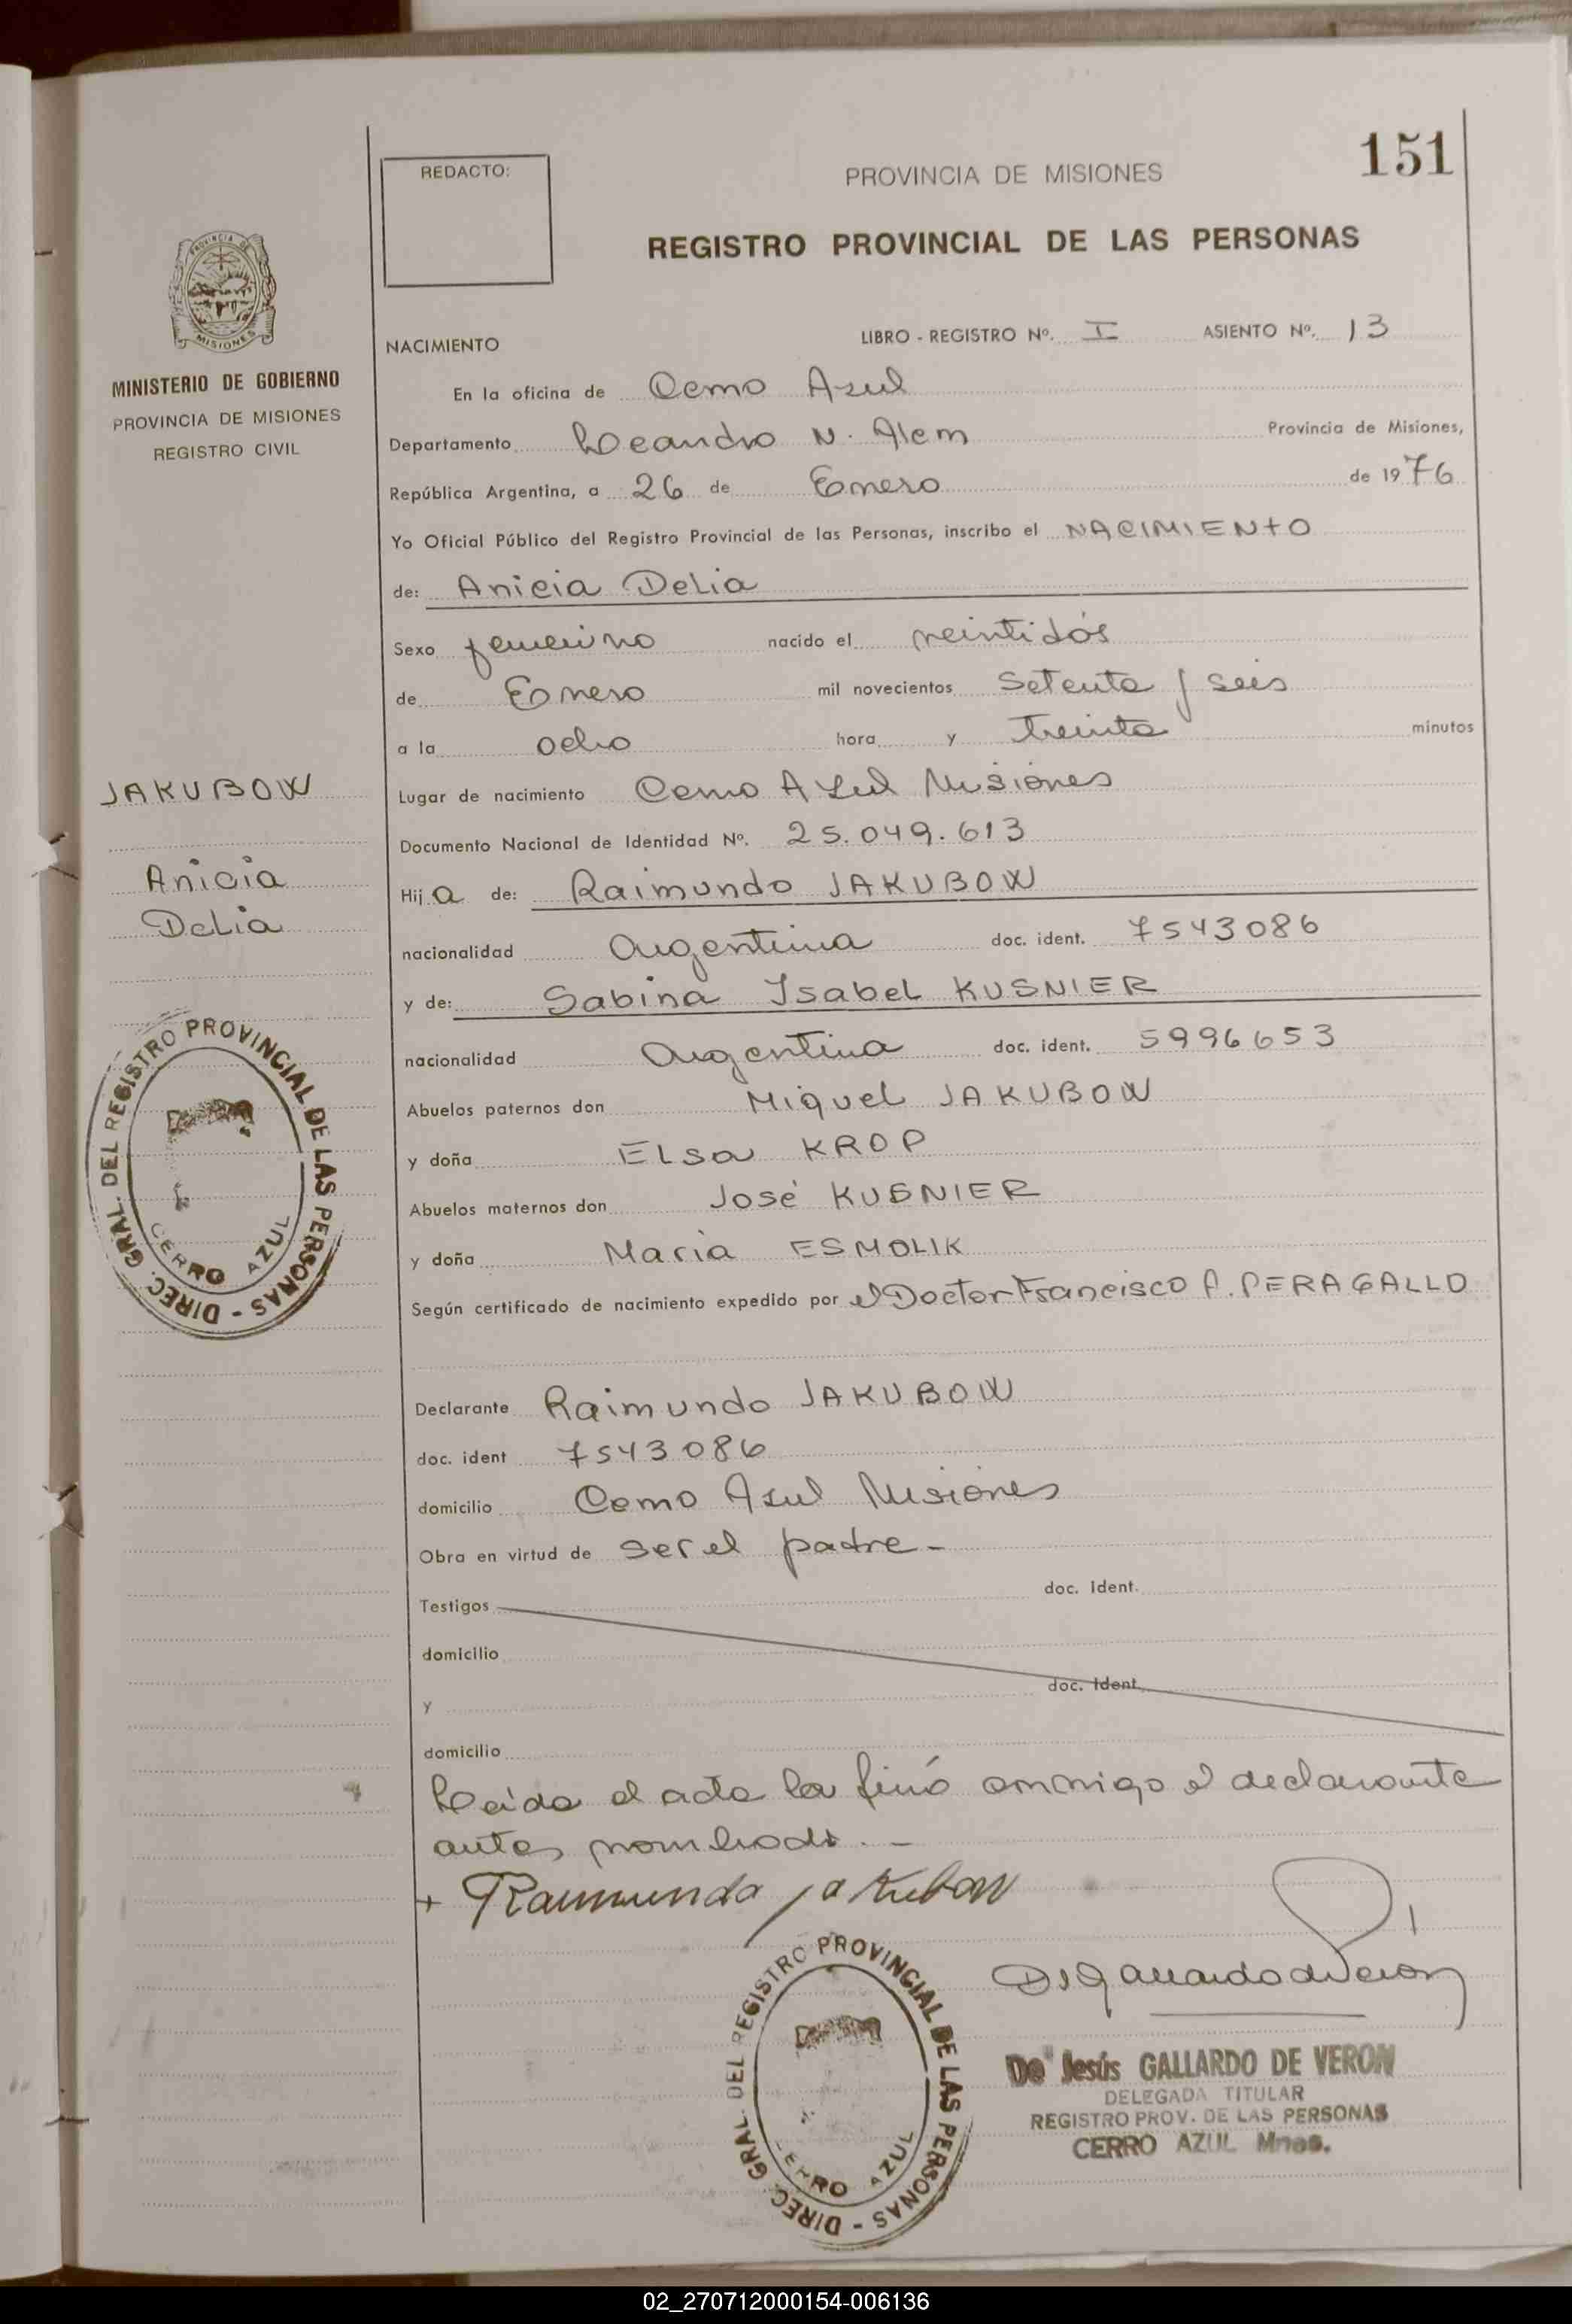 151
REDACTO:
PROVINCIA DE MISIONES
REGISTRO PROVINCIAL DE LAS PERSONAS
PROVINCIA DE
MISIONES
MINISTERIO DE GOBIERNO
PROVINCIA DE MISIONES
REGISTRO CIVIL
NACIMIENTO LIBRO - REGISTRO Nº. I ASIENTO Nº. 13
En la oficina de Cerro Azul
Departamento Leandro N. Alem Provincia de Misiones,
República Argentina, a 26 de Enero de 1976
Yo Oficial Público del Registro Provincial de las Personas, inscribo el NACIMIENTO
de: Anicia Delia
Sexo femenino nacido el veintidós
de Enero mil novecientos Setenta y seis
a la ocho hora y treinta minutos
JAKUBOW
Anicia
Delia
Lugar de nacimiento Cerro Azul Misiones
Documento Nacional de Identidad Nº. 25.049.613
Hija de: Raimundo JAKUBOW
nacionalidad Argentina doc. ident. 7543086
y de: Sabina Isabel KUSNIER
nacionalidad Argentina doc. ident. 5996653
Abuelos paternos don Miguel JAKUBOW
y doña Elsa KROP
Abuelos maternos don José KUSNIER
y doña Maria ESMOLIK
Según certificado de nacimiento expedido por el Doctor Francisco P. PERAGALLO
DIREC. GRAL. DEL REGISTRO PROVINCIAL DE LAS PERSONAS -
CERRO AZUL
Declarante Raimundo JAKUBOW
doc. ident 7543086
domicilio Cerro Azul Misiones
Obra en virtud de ser el padre -
Testigos doc. Ident.
domicilio
y doc. Ident.
domicilio
Leída el acta la firmó conmigo el declarante
antes nombrado. -
+ Raimundo jakubow
DJ Gallardo de Veron
De Jesús GALLARDO DE VERON
DELEGADA TITULAR
REGISTRO PROV. DE LAS PERSONAS
CERRO AZUL Mnes.
DIREC. GRAL. DEL REGISTRO PROVINCIAL DE LAS PERSONAS -
CERRO AZUL
02_270712000154-006136